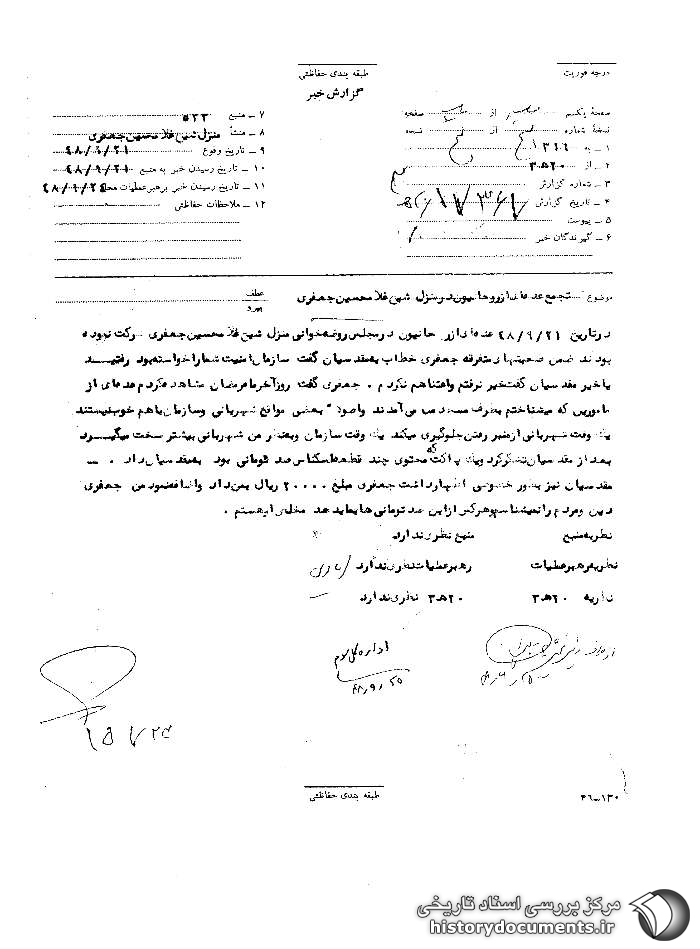 درجه فوریت
طبقه بندی حفاظتی
گزارش خبر
صفحه یکم از صفحه
نسخه شماره از نسخه
۱ ـ به ۳۱۶
۲ ـ از ۲۰ ه ۳
۳ ـ شماره گزارش
۴ ـ تاریخ گزارش
۵ ـ پیوست
۶ ـ گیرندگان خبر
۷ ـ منبع
۸ ـ منشأ منزل شیخ غلامحسین جعفری
۹ ـ تاریخ وقوع ۴۸/۹/۲۱
۱۰ ـ تاریخ رسیدن خبر به منبع ۴۸/۹/۲۱
۱۱ ـ تاریخ رسیدن خبر برهبر عملیات محل
۱۲ ـ ملاحظات حفاظتی
موضوع : تجمع عده ای از روحانیون در منزل شیخ غلامحسین جعفری
عطف
پیرو
در تاریخ ۴۸/۹/۲۱ عده ای از روحانیون در مجلس روضه خوانی منزل شیخ غلامحسین جعفری شرکت نموده
بودند ضمن صحبتهای متفرقه جعفری خطاب به مقدسیان گفت سازمان امنیت شما را خواسته بود رفتید
یا خیر مقدسیان گفت خیر نرفتم و اعتنا هم نکردم . جعفری گفت روز آخر ماه رمضان مشاهده کردم عده ای از
مامورین که میشناختم بطرف مسجد می آمدند واصولا" بعضی مواقع شهربانی وسازمان باهم خوب نیستند
یک وقت شهربانی از منبر رفتن جلوگیری میکند یک وقت سازمان وبنظر من شهربانی بیشتر سخت میگیرد
بعد از مقدسیان تشکر کرد ویک پاکت که محتوی چند قطعه اسکناس صد تومانی بود به مقدسیان داد . ـ
مقدسیان نیز بطور خصوصی اظهار داشت جعفری مبلغ ۲۰۰۰۰ ریال بمن داد واضافه نمود من جعفری
دین ومردم را نمیشناسم وهر کس از این صد تومانی ها بماید هد مخلص او هستم .
نظریه منبع منبع نظری ندارد
نظریه رهبر عملیات رهبر عملیات نظری ندارد
نظریه ۲۰ ه ۳ ۲۰ ه ۳ نظری ندارد
اداره کل سوم
۴۸/۹/۲۵
طبقه بندی حفاظتی
۴۶-۱۳۰
مرکز بررسی اسناد تاریخی
historydocuments.ir